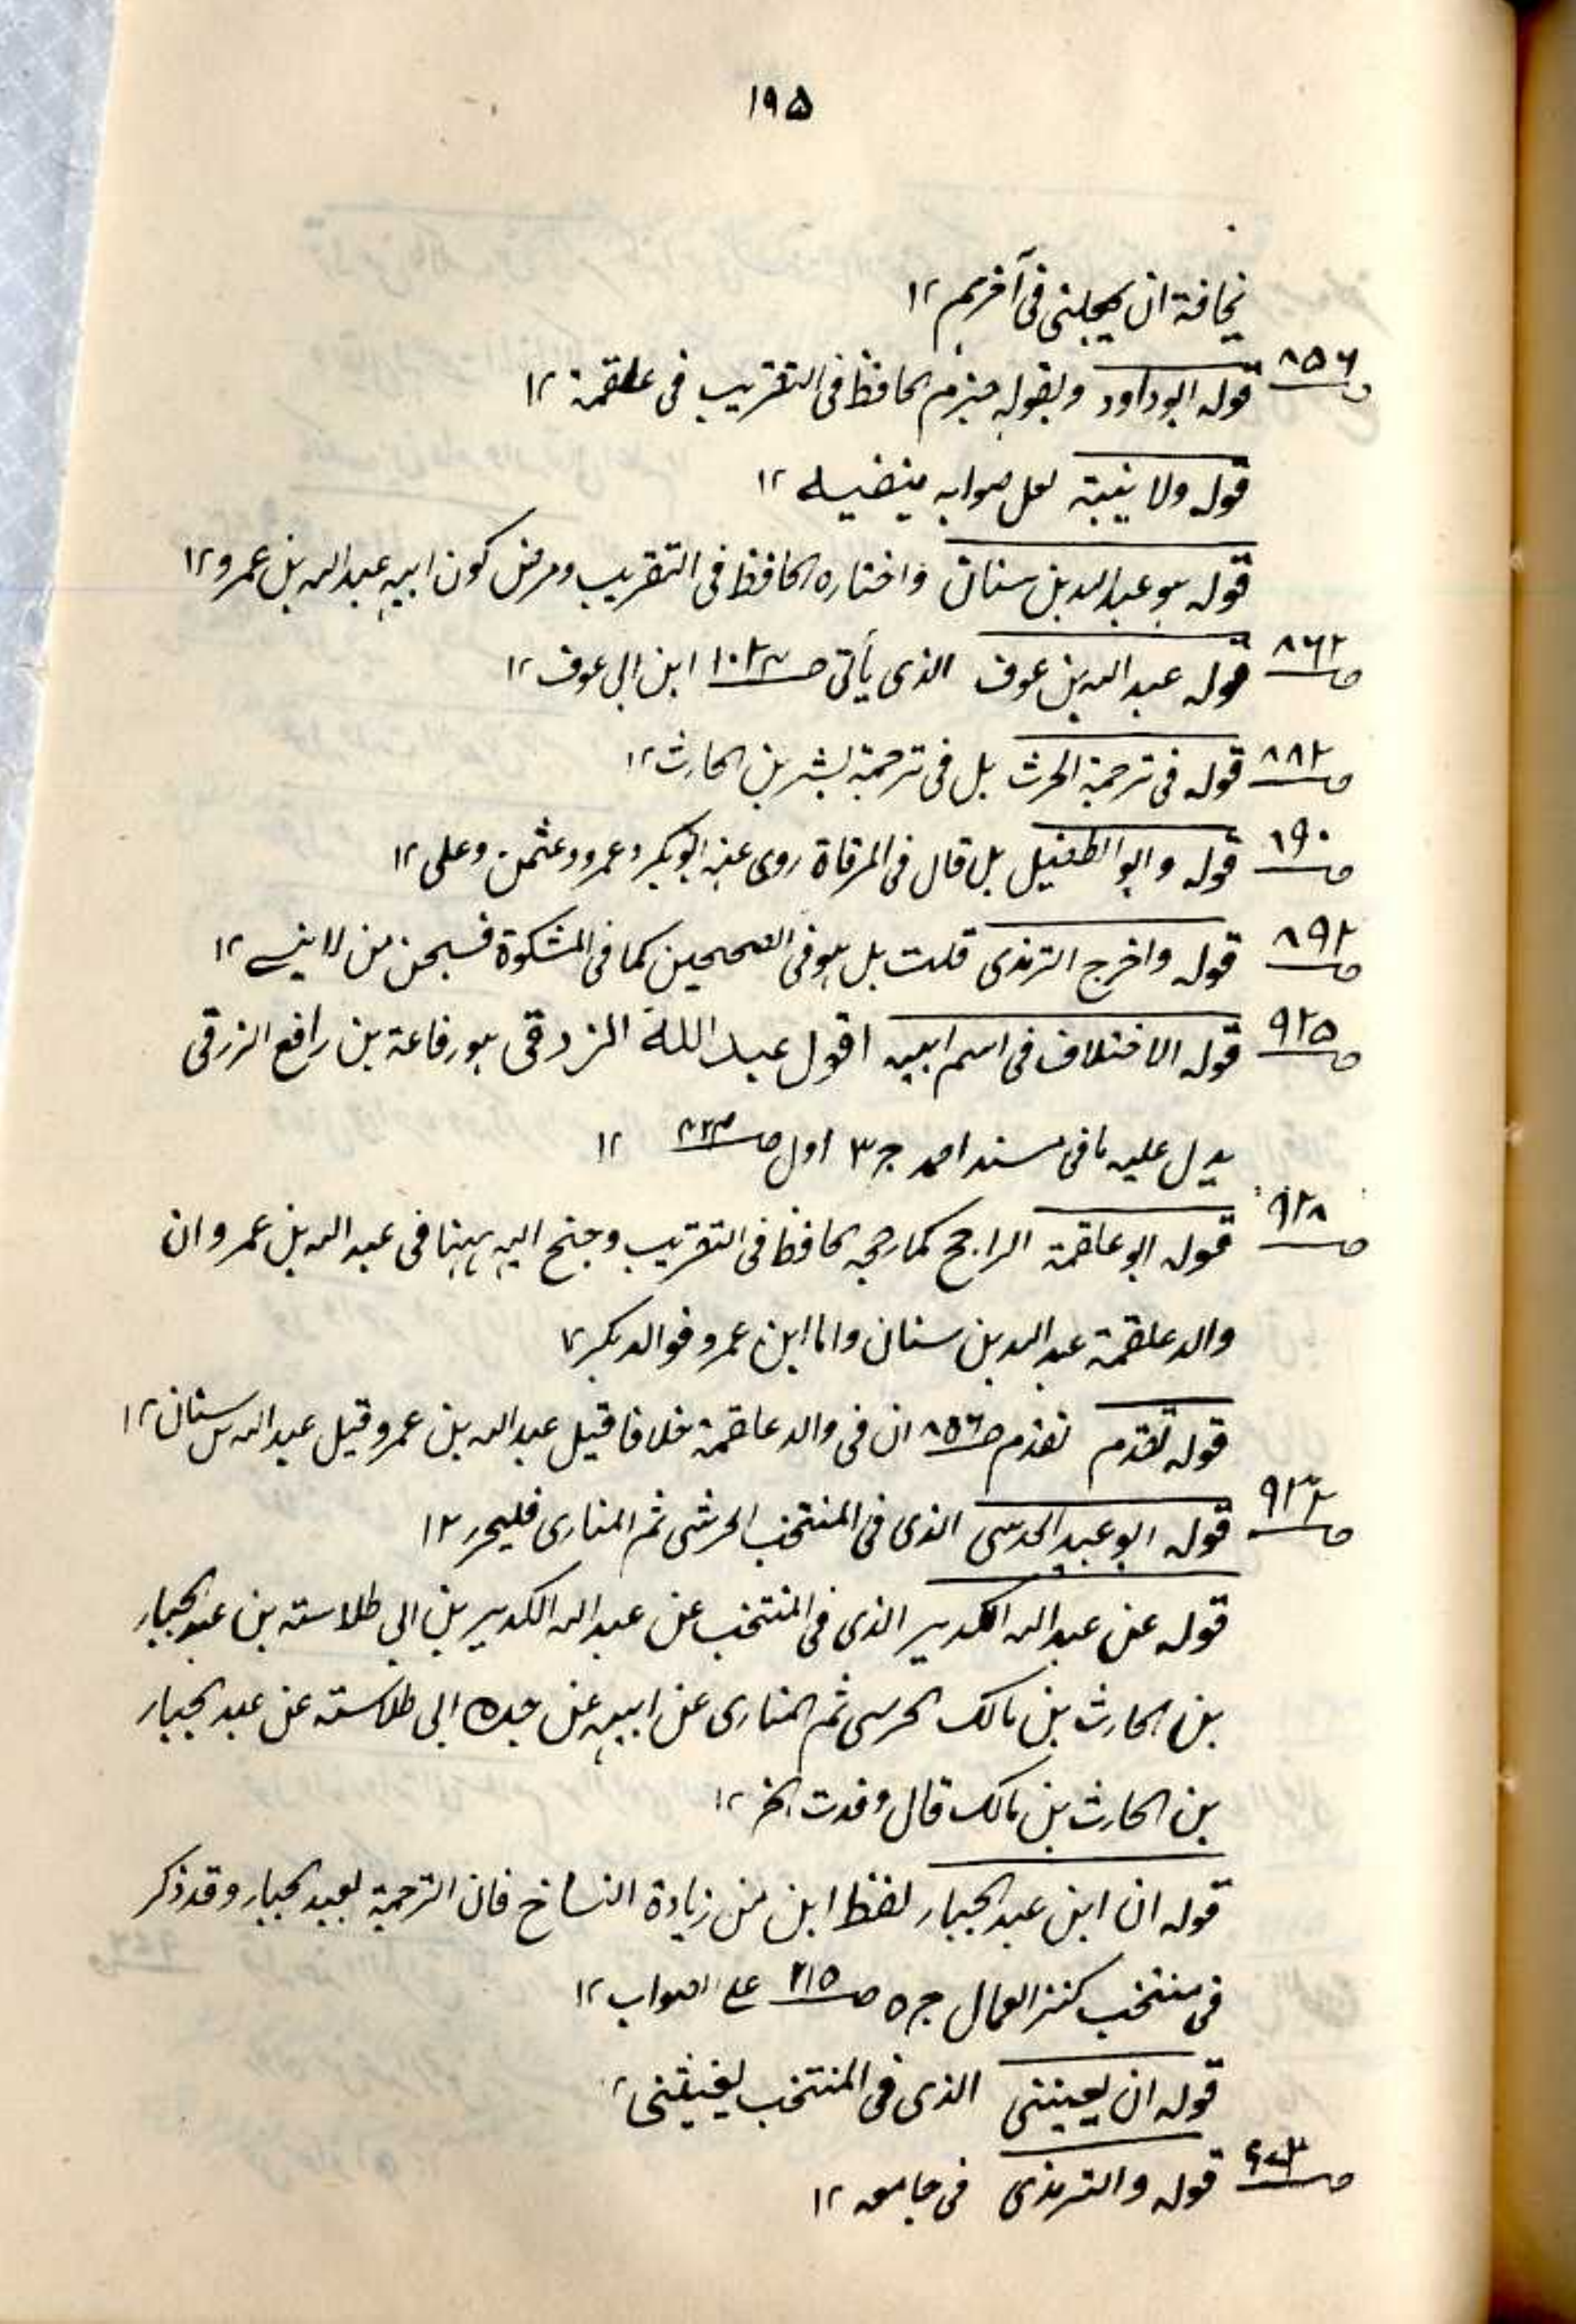 ١٩٥
مخافة ان يجعلنى فى آخرهم ١٢
ص ٨٥٦ قوله ابو داود وبقوله جزم الحافظ فى التقريب فى علقمة ١٢
قوله ولا لعل صوابه ١٢
قوله هو عبد الله بن سنان واختاره الحافظ فى التقريب ومرض كون ابيه عبد الله بن عمرو ١٢
ص ٨٦٢ قوله عبد الله بن عوف الذى يأتى ص ابن ابى عوف ١٢
ص ٨٨٢ قوله فى ترجمة الحرث بل فى ترجمة بشر بن الحارث ١٢
ص ٨٩٠ قوله وابو الطفيل بل قال فى المرقاة روى عنه ابو بكر وعمر وعثمن وعلى ١٢
ص ٨٩٢ قوله واخرج الترمذى قلت بل هو فى الصحيحين كما فى المشكوة فسبحن من لا ينسى ١٢
ص ٩٢٥ قوله الاختلاف فى اسم ابيه اقول عبد الله الزرقى هو رفاعة بن رافع الزرقى
يدل عليه ما فى مسند احمد ج ٣ اول ص ١٢
ص ٩٢٨ قوله ابو علقمة الراجح كما رجحه الحافظ فى التقريب وجنح اليه ههنا فى عبد الله بن عمرو ان
والد علقمة عبد الله بن سنان واما ابن عمرو فوالد بكر ١٢
قوله تقدم تقدم ص ٨٥٦ ان فى والد علقمة خلافا قيل عبد الله بن عمرو قيل عبد الله بن سنان ١٢
ص ٩٣٢ قوله ابو عبيد الحدسى الذى فى المنتخب الحرشى ثم المنارى فليحرر ١٢
قوله عن عبد الله الكدير الذى فى المنتخب عن عبد الله الكدير بن ابى طلاسة بن عبد الجبار
بن الحارث بن مالك الحرسى ثم المنارى عن ابيه عن جده ابى طلاسة عن عبد الجبار
بن الحارث بن مالك قال وفدت الخ ١٢
قوله ان ابن عبد الجبار لفظ ابن من زيادة النساخ فان الترجمة لعبد الجبار وقد ذكر
فى منتخب كنز العمال ج ٥ ص ٢١٥ على الصواب ١٢
قوله ان يعيننى الذى فى المنتخب يغيثنى ١٢
ص قوله والترمذى فى جامعه ١٢